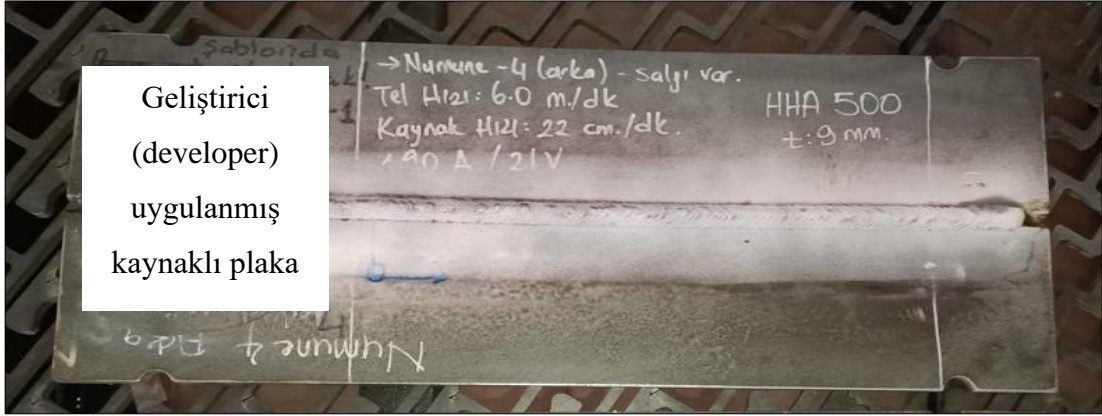 Şablonda
Geliştirici
(developer)
uygulanmış
kaynaklı plaka
→Numune-4 (arka) - salgı var.
Tel Hızı: 6.0 m./dk
Kaynak Hızı: 22 cm./dk.
190 A / 21V
HHA 500
t: 9 mm.
Numune 4